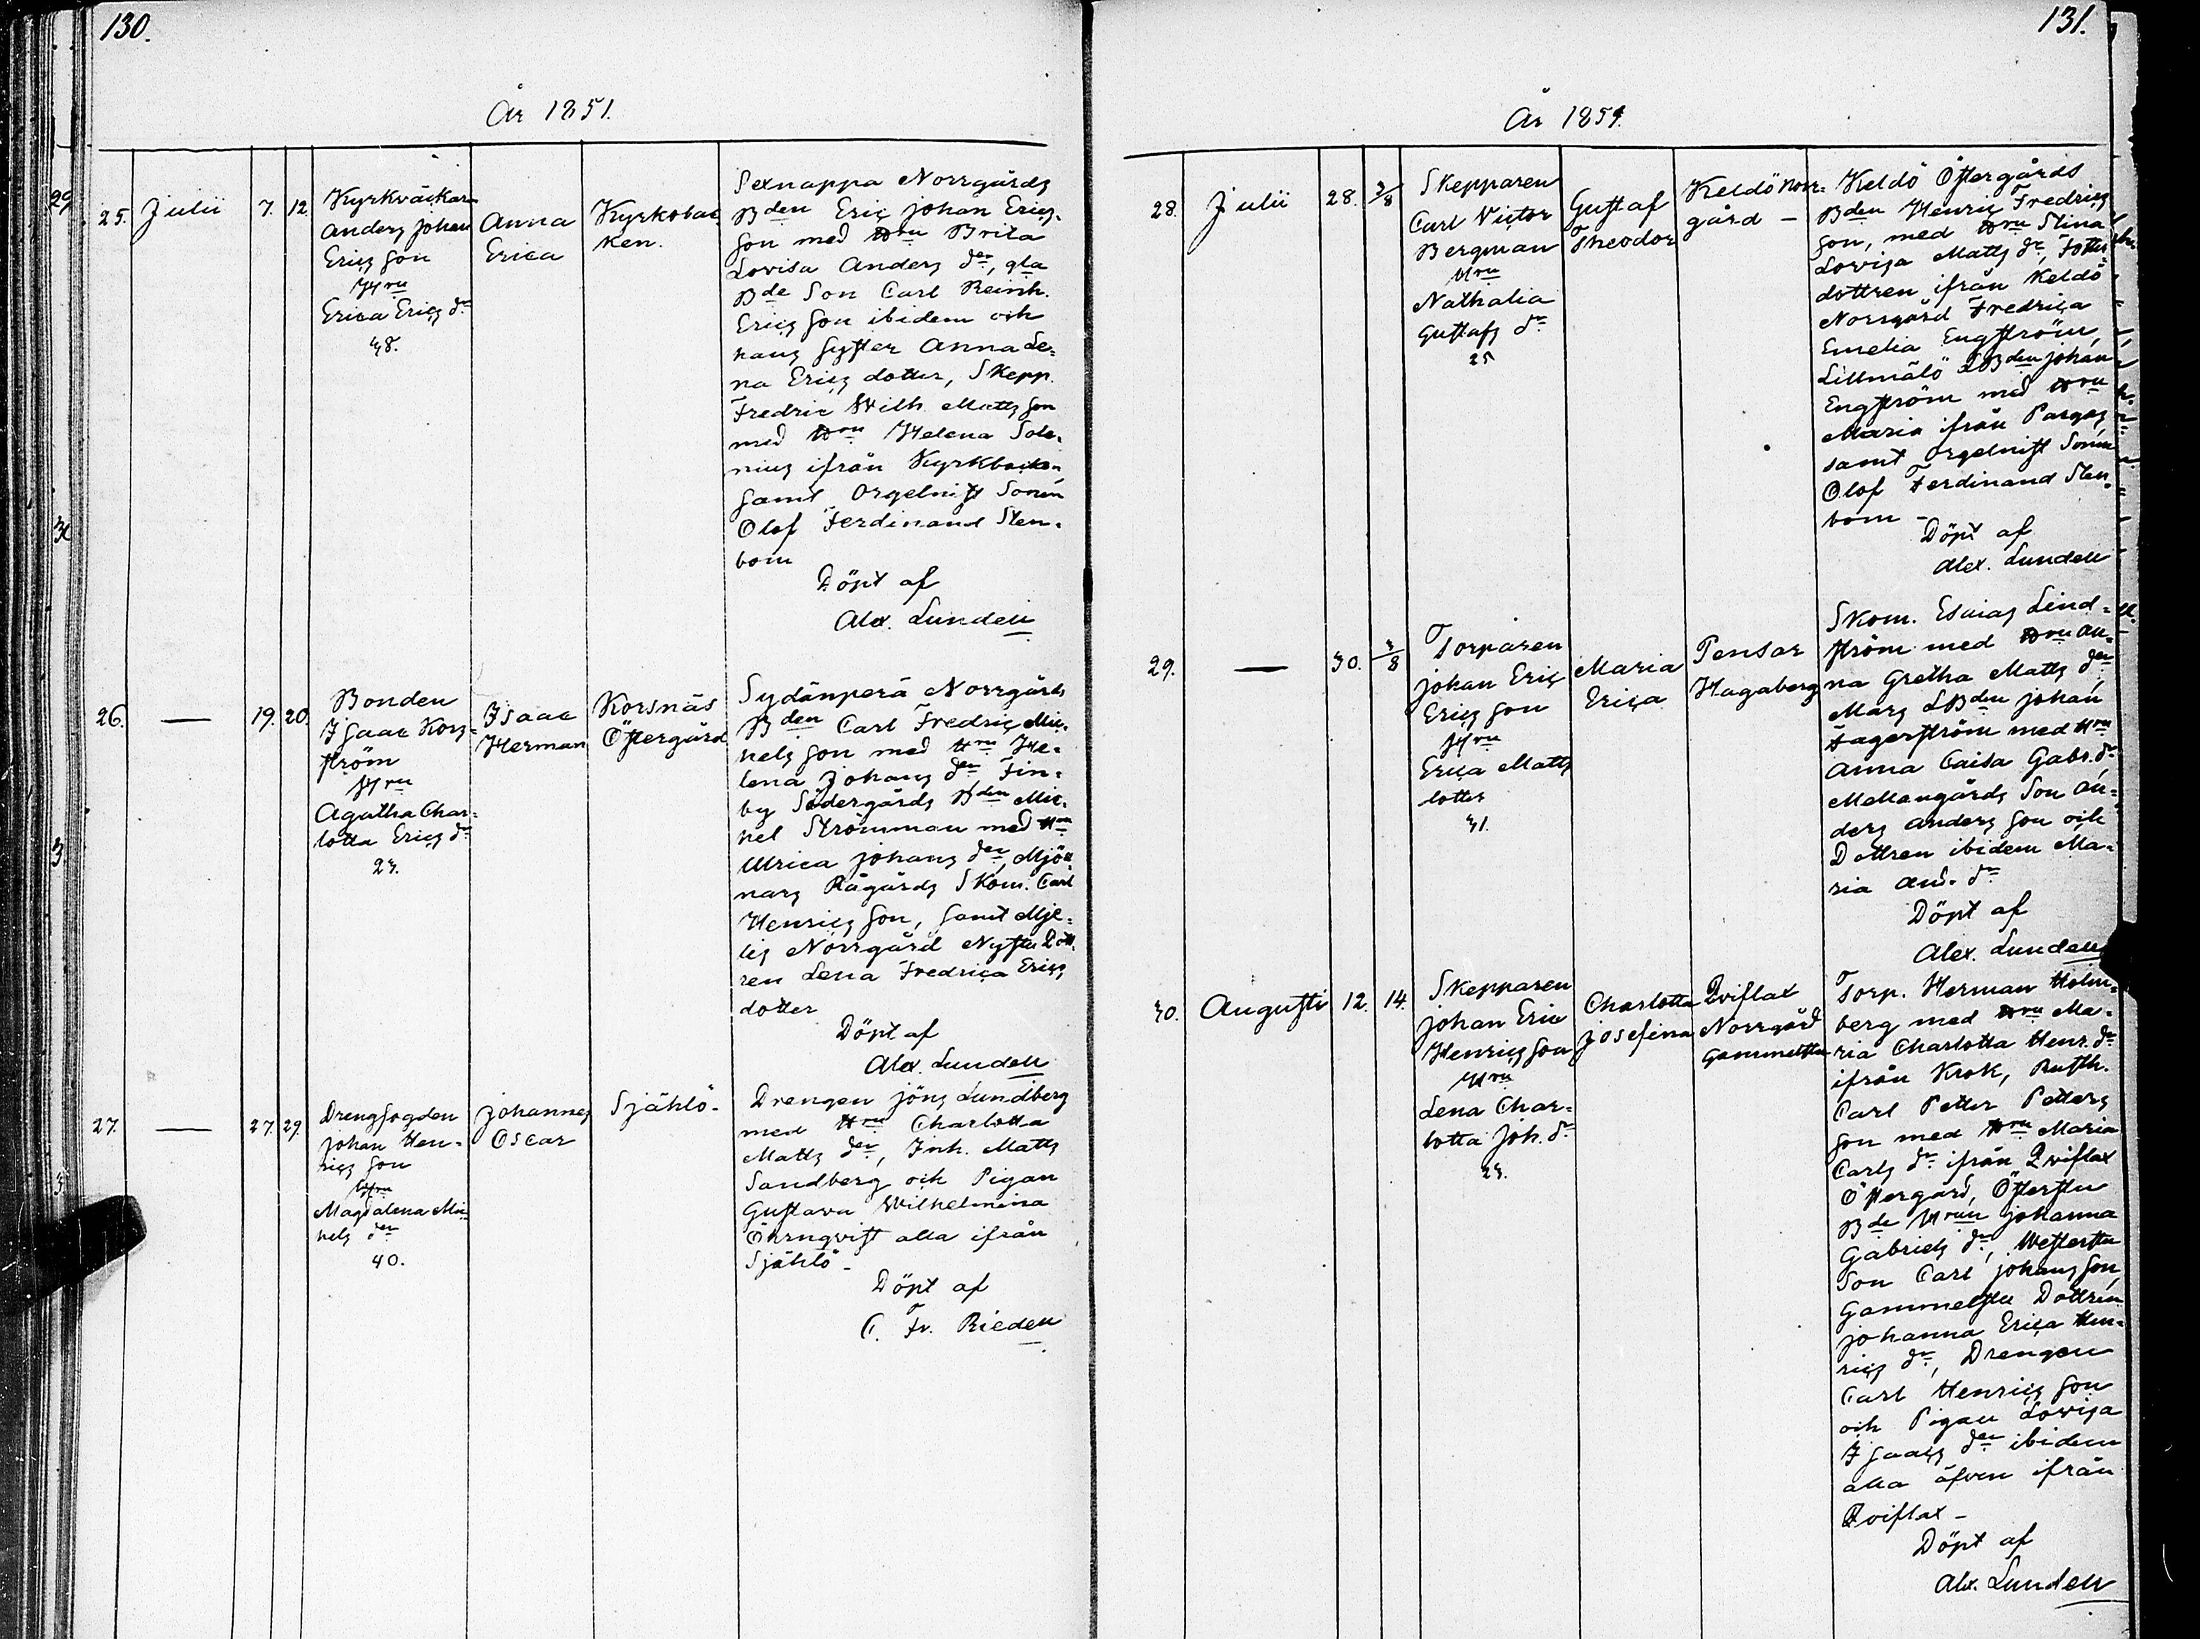 130.
År 1851.
25.
Julii
7.
12.
Kyrkväckar
Anders Johan
Ericsson
Hru
Erica Erics dr
38.
Anna
Erica
Kyrkobac
ken.
Sexnappa Norrgårds
Bden Eric Johan Erics-
son med Hru Brita
Lovisa Anders der, gla
Bde Son Carl Reinh.
Ericsson ibidem och
hans syster Anna Le-
na Erics dotter, Skepp.
Fredric Wilh. Mattsson
med Hru Helena Sole-
nius ifrån Kyrkbacken
samt Orgelnist Sonen
Olof Ferdinand Sten-
bom
Döpt af
Alex. Lundell
26.
—
19.
20.
Bonden
Isaac Kors-
ström
Hru
Agatha Char-
lotta Erics dr
23.
Isaac
Herman
Korsnäs
Östergård
Sydänperä Norrgårds
Bden Carl Fredric Mic-
hels son med Hru He-
lena Johans der, Fin-
by Södergårds Bden Mic-
hel Strömman med Hru
Ulrica Johans der, Mjö-
nars Rågårds Skom. Carl
Henricsson, samt Mje-
lis Norrgård Nystu Dott-
ren Lena Fredrica Erics
dotter
Döpt af
Alex. Lundell
27.
—
27
29.
Drengfogden
Johan Hen-
rics son
Hru
Magdalena Mic
hels der
40.
Johannes
Oscar
Själö-
Drengen Jöns Lundberg
med Hru Charlotta
Matts der, Inh. Matts
Sandberg och Pigan
Gustava Wilhelmina
Öhrnqvist alla ifrån
Själö-
Döpt af
C. Fr. Rieden
131.
År 1851.
28.
Julii
28.
3/8
Skepparen
Carl Victor
Bergman
Hru
Nathalia
Gustafs dr
25
Gustaf
Theodor
Keldö Norr-
gård —
Keldö Östergårds
Bden Henric Fredrics
son, med Hru Stina
Lovisa Matts dr, Foster
dottren ifrån Keldö
Norrgård Fredrica
Emelia Engström,
Lillmälö LBden Johan
Engström med Hru
Maria ifrån Pargas
samt Orgelnist Sonen
Olof Ferdinand Sten-
bom -
Döpt af
Alex. Lundell
29.
—
30.
3/8
Torparen
Johan Eric
Ericsson
Hru
Erica Matts
dotter
31.
Maria
Erica
Pensar
Hagaberg
Skom. Esaias Lind-
ström med Hru An-
na Gretha Matts der
Mars LBden Johan
Fagerström med Hru
Anna Caisa Gabr. dr
Mellangårds Son An-
ders Andersson och
Dottren ibidem Ma-
ria And. dr
Döpt af
Alex. Lundell
30.
Augusti
12.
14.
Skepparen
Johan Eric
Henricsson
Hru
Lena Char-
lotta Joh. dr
23.
Charlotta
Josefina
Qviflax
Norrgård
Gammelstu
Torp. Herman Holm-
berg med Hru Ma-
ria Charlotta Henr. dr
ifrån Krok, Rusth.
Carl Petter Petters
son med Hru Maria
Carls dr ifrån Qviflax
Östergård, Österstu
Bde Hrun Johanna
Gabriels dr, Westerstu
Son Carl Johansson,
Gammelstu Dottren
Johanna Erica Hen-
rics dr, Drengen
Carl Henricsson
och Pigan Lovisa
Isaacs der ibidem
alla äfven ifrån
Qviflax -
Döpt af
Alex. Lundell